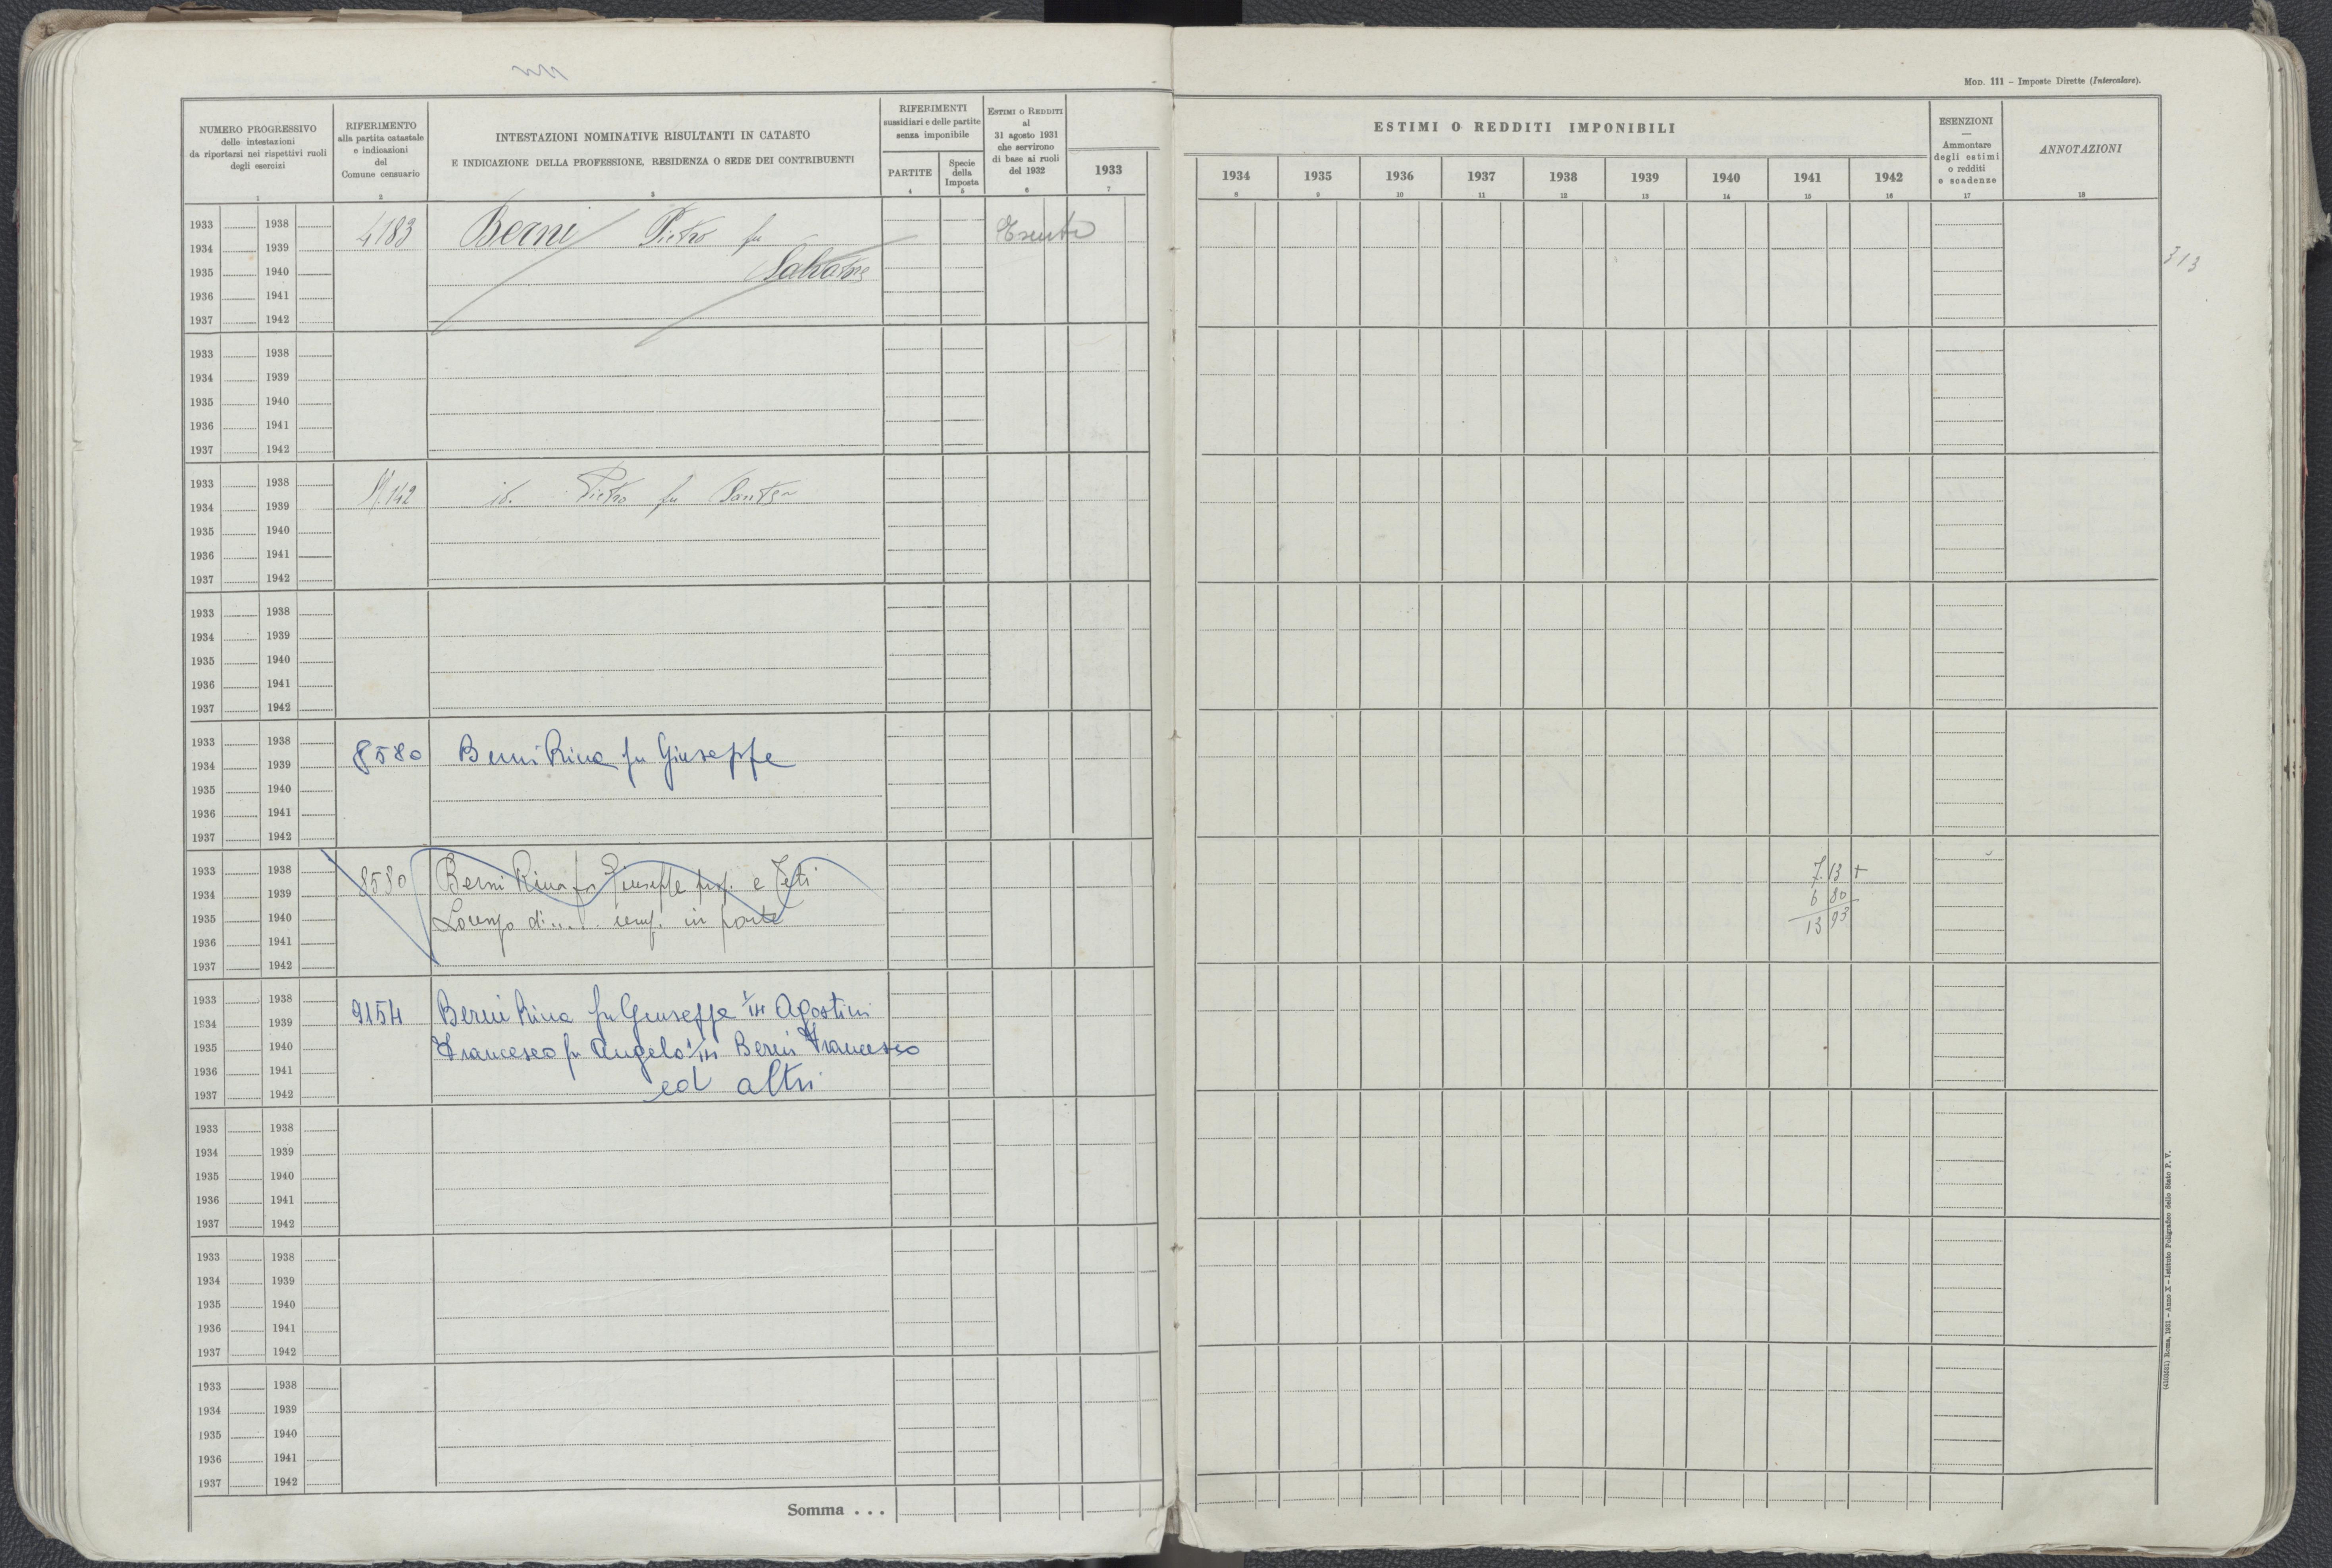 Mod. 111 – Imposte Dirette (Intercalare).
NUMERO PROGRESSIVO
delle intestazioni
da riportarsi nei rispettivi ruoli
degli esercizi
1
RIFERIMENTO
alla partita catastale
e indicazioni
del
Comune censuario
2
INTESTAZIONI NOMINATIVE RISULTANTI IN CATASTO
E INDICAZIONE DELLA PROFESSIONE, RESIDENZA O SEDE DEI CONTRIBUENTI
3
RIFERIMENTI
sussidiari e delle partite
senza imponibile
PARTITE
4
Specie
della
Imposta
5
Estimi o Redditi
al
31 agosto 1931
che servirono
di base ai ruoli
del 1932
6
1933
7
ESTIMI O REDDITI IMPONIBILI
1934 1935 1936 1937 1938 1939 1940 1941 1942
8 9 10 11 12 13 14 15 16
ESENZIONI
—
Ammontare
degli estimi
o redditi
e scadenze
17
ANNOTAZIONI
18
1933 1938 4183 Berni Pietro fu Esente
1934 1939
1935 1940 Salvatore
1936 1941
1937 1942
313
1933 1938
1934 1939
1935 1940
1936 1941
1937 1942
1933 1938 142 id. Pietro fu Sante
1934 1939
1935 1940
1936 1941
1937 1942
1933 1938
1934 1939
1935 1940
1936 1941
1937 1942
1933 1938 8580 Berni Rina fu Giuseppe
1934 1939
1935 1940
1936 1941
1937 1942
1933 1938 8580 Berni Rina fu Giuseppe prop. e Teti 7.13 +
1934 1939 6 80
1935 1940 Lorenzo di.... in parte 13 93
1936 1941
1937 1942
1933 1938 9154 Berni Rina fu Giuseppe Agostini
1934 1939
1935 1940 Francesco fu Angelo Berni Francesco
1936 1941 ed altri
1937 1942
1933 1938
1934 1939
1935 1940
1936 1941
1937 1942
1933 1938
1934 1939
1935 1940
1936 1941
1937 1942
1933 1938
1934 1939
1935 1940
1936 1941
1937 1942
Somma . . .
(4103651) Roma, 1931 – Anno X – Istituto Poligrafico dello Stato P. V.